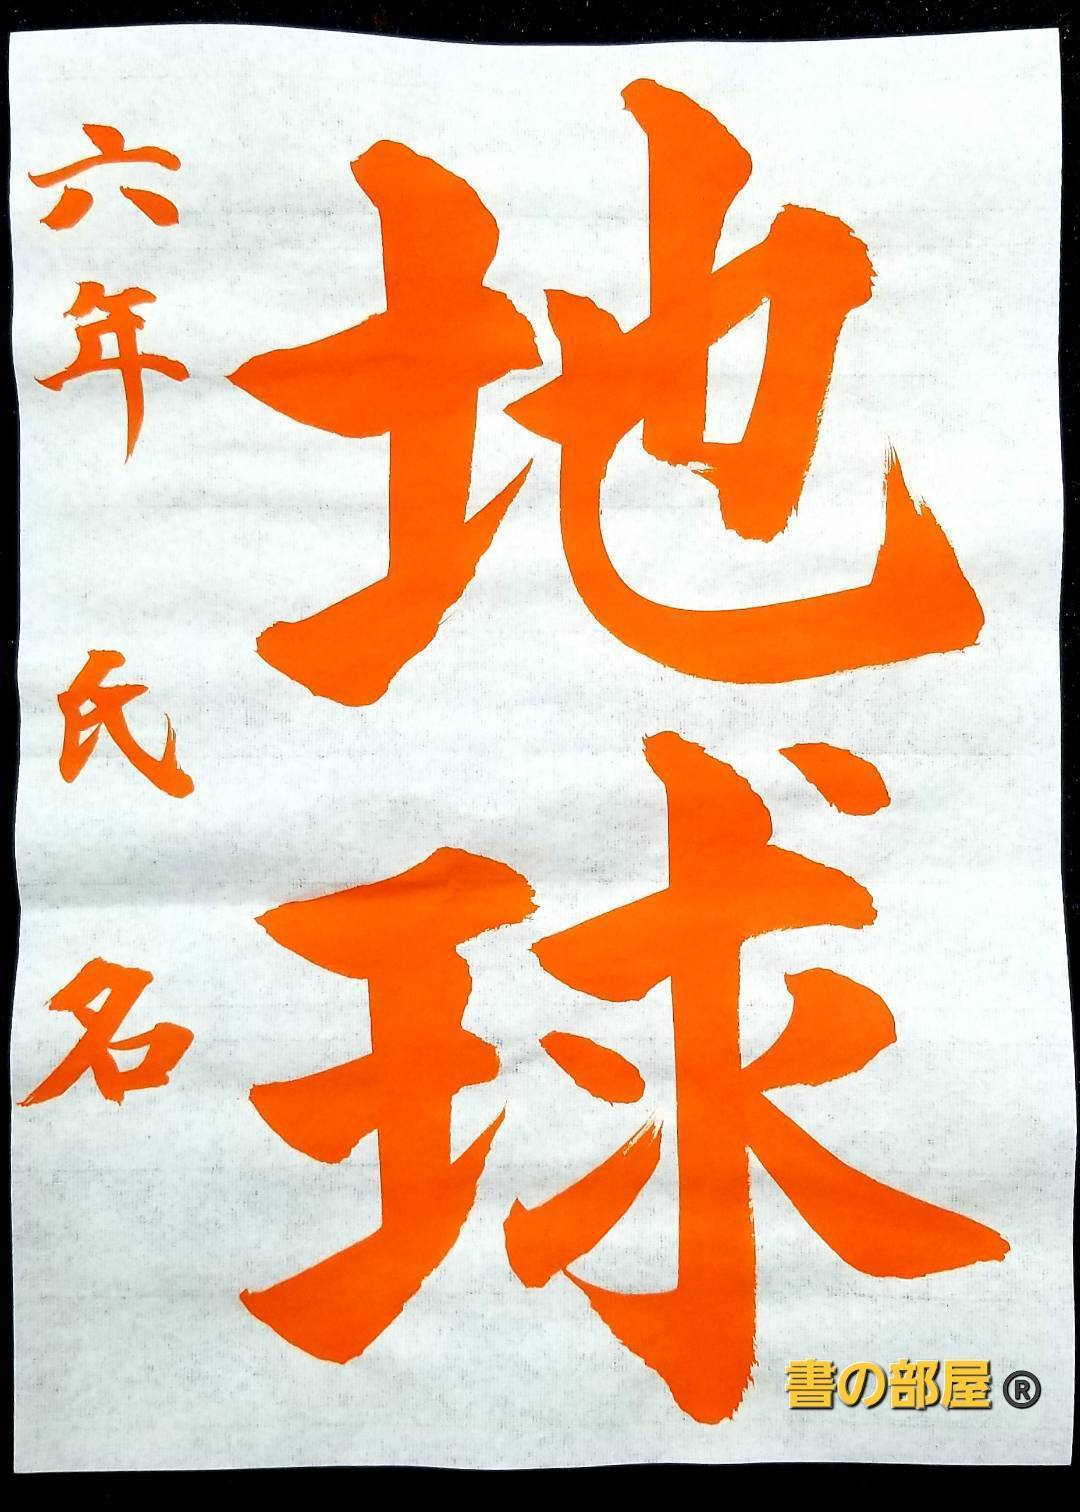 地球
六年 氏名
書の部屋®